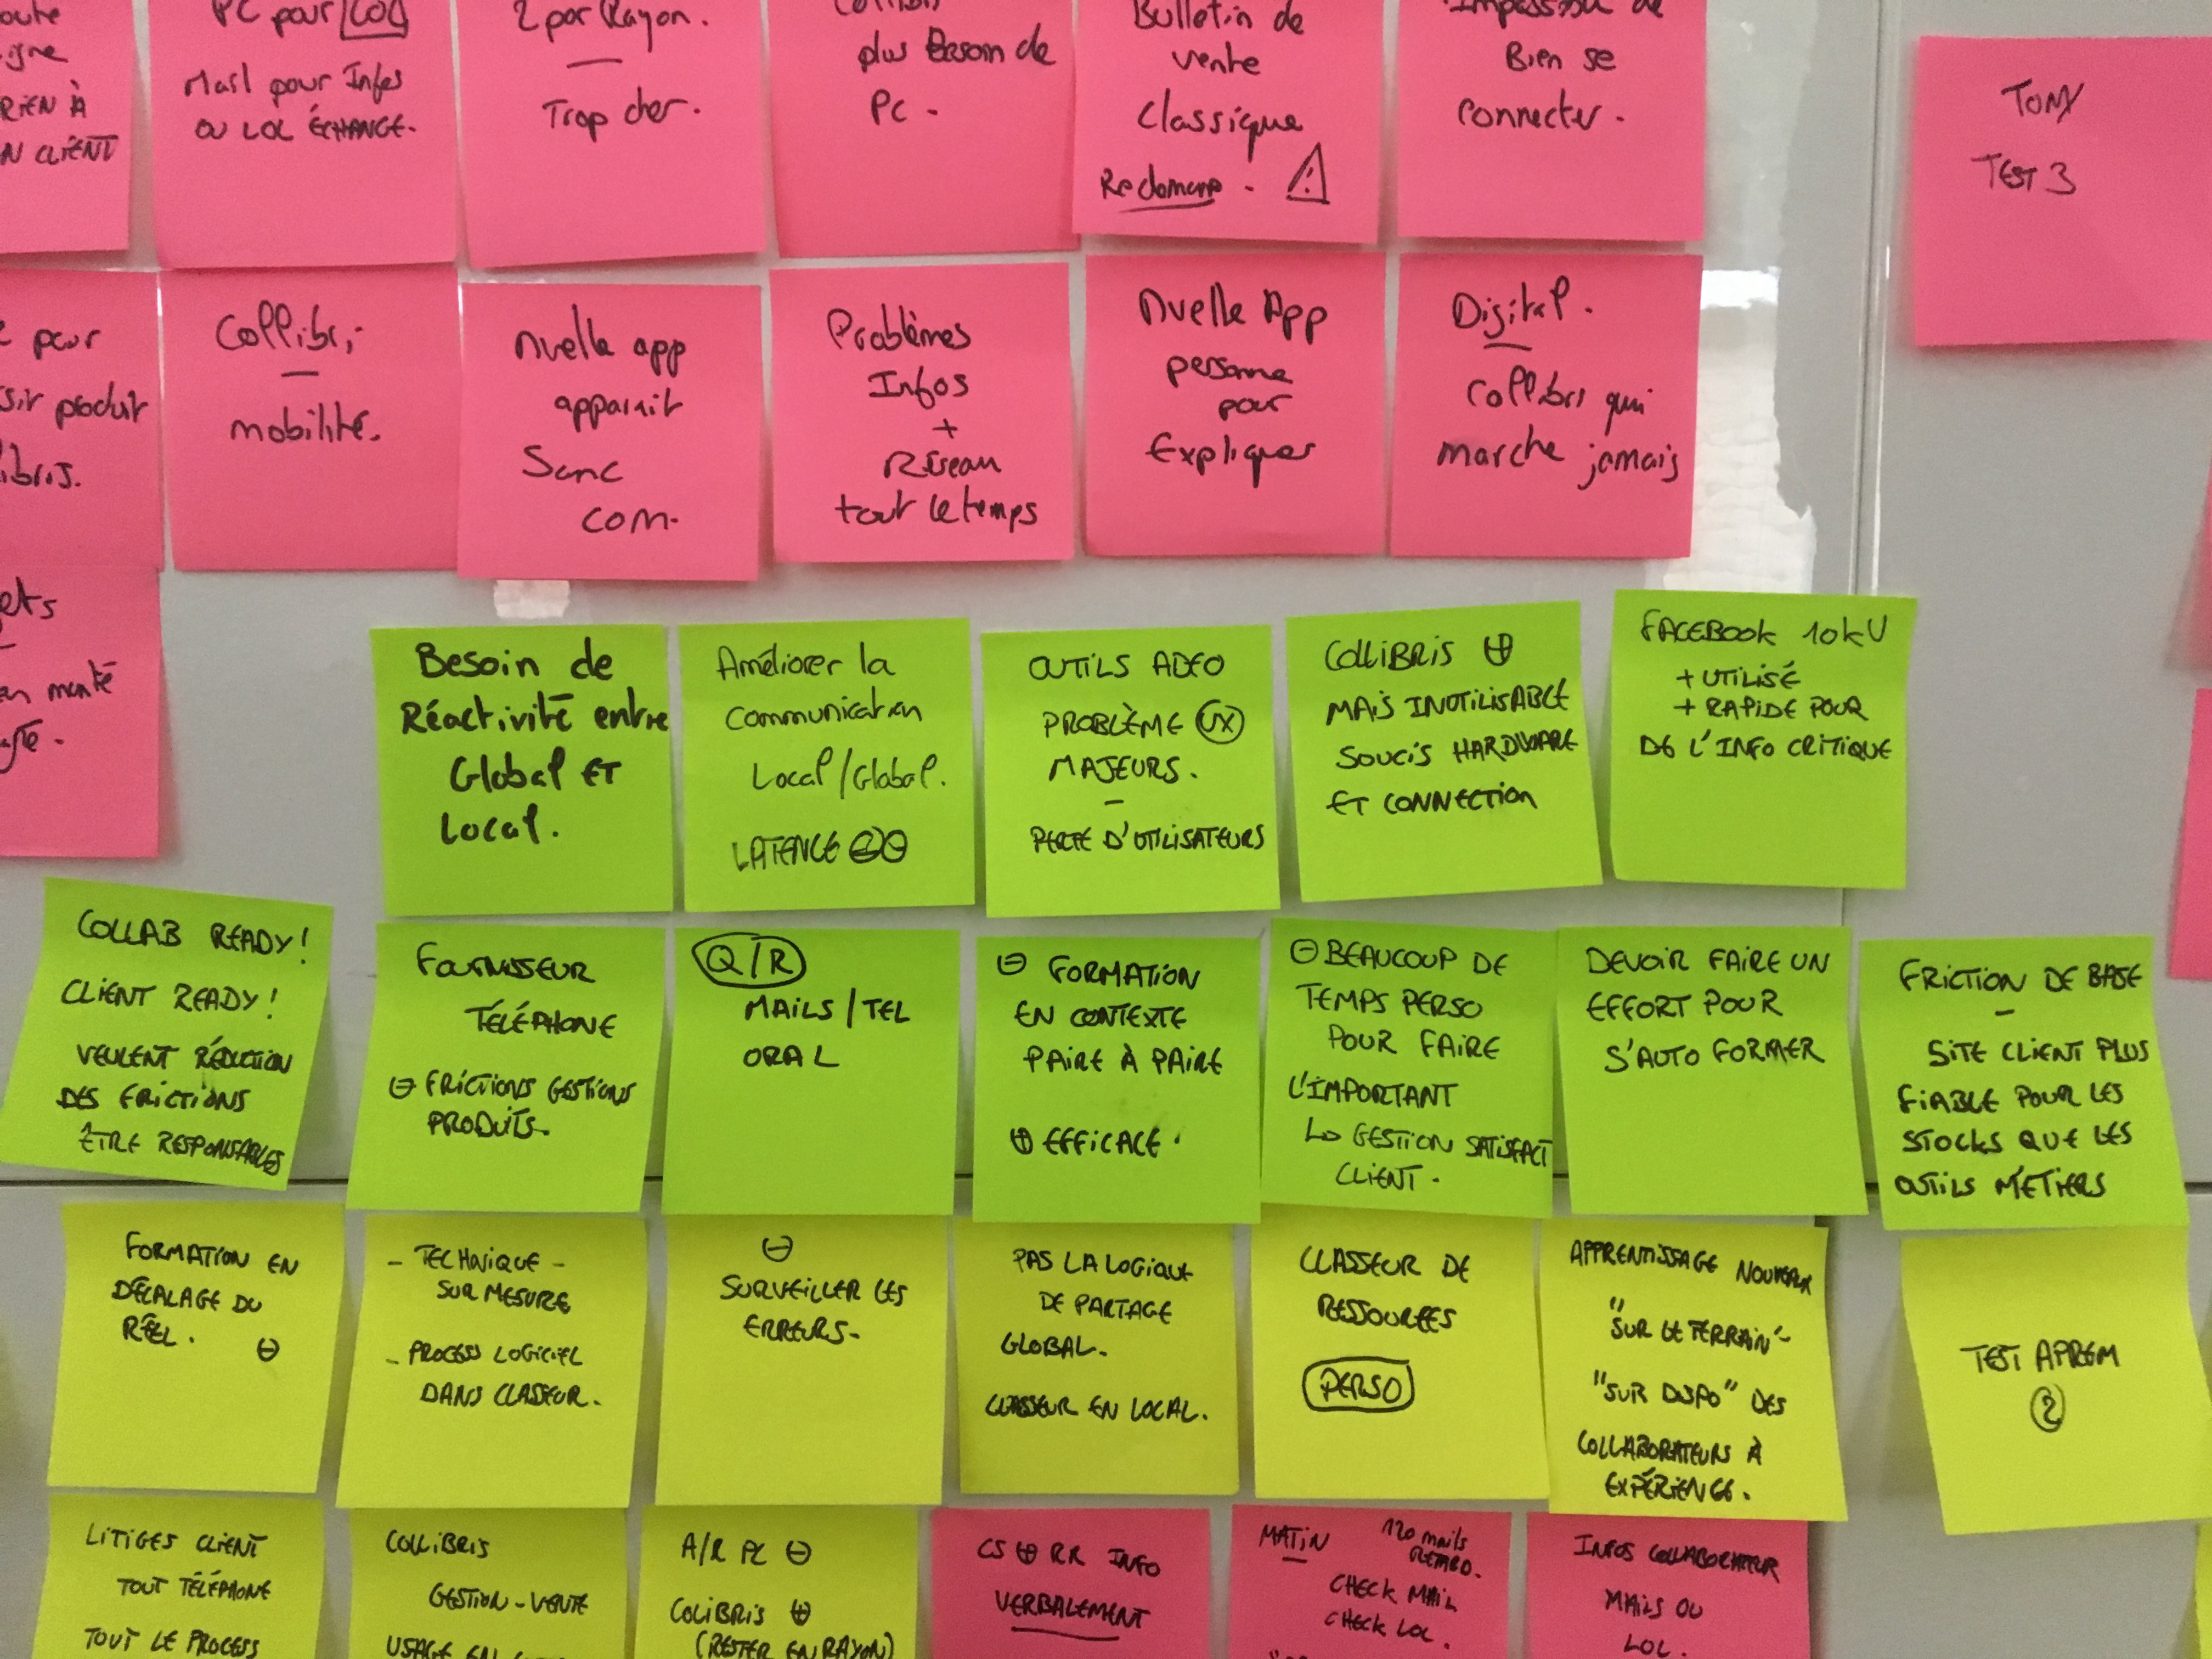 PC pour LOL
Mail pour Infos
OU LOL ÉCHANGE.
2 por Rayon.
—
Trop cher.
plus Besoin de
PC.
Bulletin de
vente
Classique
Impossible de
Bien se
connecter.
TONY
TEST 3
RIEN À
N CLIENT
pour
sir produit
libris.
Collibri
—
mobilité.
Nvelle app
apparait
Sanc
com.
Problèmes
Infos
+
Réseau
tout le temps
Nvelle App
personne
pour
Expliquer
Digital.
Collibri qui
marche jamais
ets
en monté
Besoin de
Réactivité entre
Global ET
Local.
Améliorer la
communication
Local/Global.
LATENCE ⊖⊖
OUTILS ADEO
PROBLÈME UX
MAJEURS.
—
PERTE D'UTILISATEURS
COLLIBRIS ⊕
MAIS INUTILISABLE
SOUCIS HARDWARE
ET CONNECTION
FACEBOOK 10KU
+ UTILISÉ
+ RAPIDE POUR
DE L'INFO CRITIQUE
COLLAB READY!
CLIENT READY!
VEULENT RÉDUCTION
DES FRICTIONS
ÊTRE RESPONSABLES
FOURNISSEUR
TÉLÉPHONE
⊖ FRICTIONS GESTIONS
PRODUITS.
Q/R
MAILS/TEL
ORAL
⊖ FORMATION
EN CONTEXTE
PAIRE À PAIRE
⊕ EFFICACE.
⊖ BEAUCOUP DE
TEMPS PERSO
POUR FAIRE
L'IMPORTANT
↳ GESTION SATISFACT
CLIENT.
DEVOIR FAIRE UN
EFFORT POUR
S'AUTO FORMER
FRICTION DE BASE
—
SITE CLIENT PLUS
FIABLE POUR LES
STOCKS QUE LES
OUTILS MÉTIERS
FORMATION EN
DÉCALAGE DU
RÉEL. ⊖
- TECHNIQUE -
SUR MESURE
- PROCESS LOGICIEL
DANS CLASSEUR.
⊖
SURVEILLER LES
ERREURS.
PAS LA LOGIQUE
DE PARTAGE
GLOBAL.
CLASSEUR EN LOCAL.
CLASSEUR DE
RESSOURCES
PERSO
APPRENTISSAGE NOUVEAUX
"SUR LE TERRAIN"
"SUR DISPO" DES
COLLABORATEURS À
EXPÉRIENCE.
TEST APREM
2
LITIGES CLIENT
TOUT TÉLÉPHONE
TOUT LE PROCESS
COLLIBRIS
GESTION-VENTE
USAGE EN
A/R PC ⊖
COLIBRIS ⊕
(RESTER EN RAYON)
CS ⊕ RR INFO
VERBALEMENT
MATIN
120 mails
RETARD.
CHECK MAIL
CHECK LOL.
INFOS COLLABORATEUR
MAILS OU
LOL.